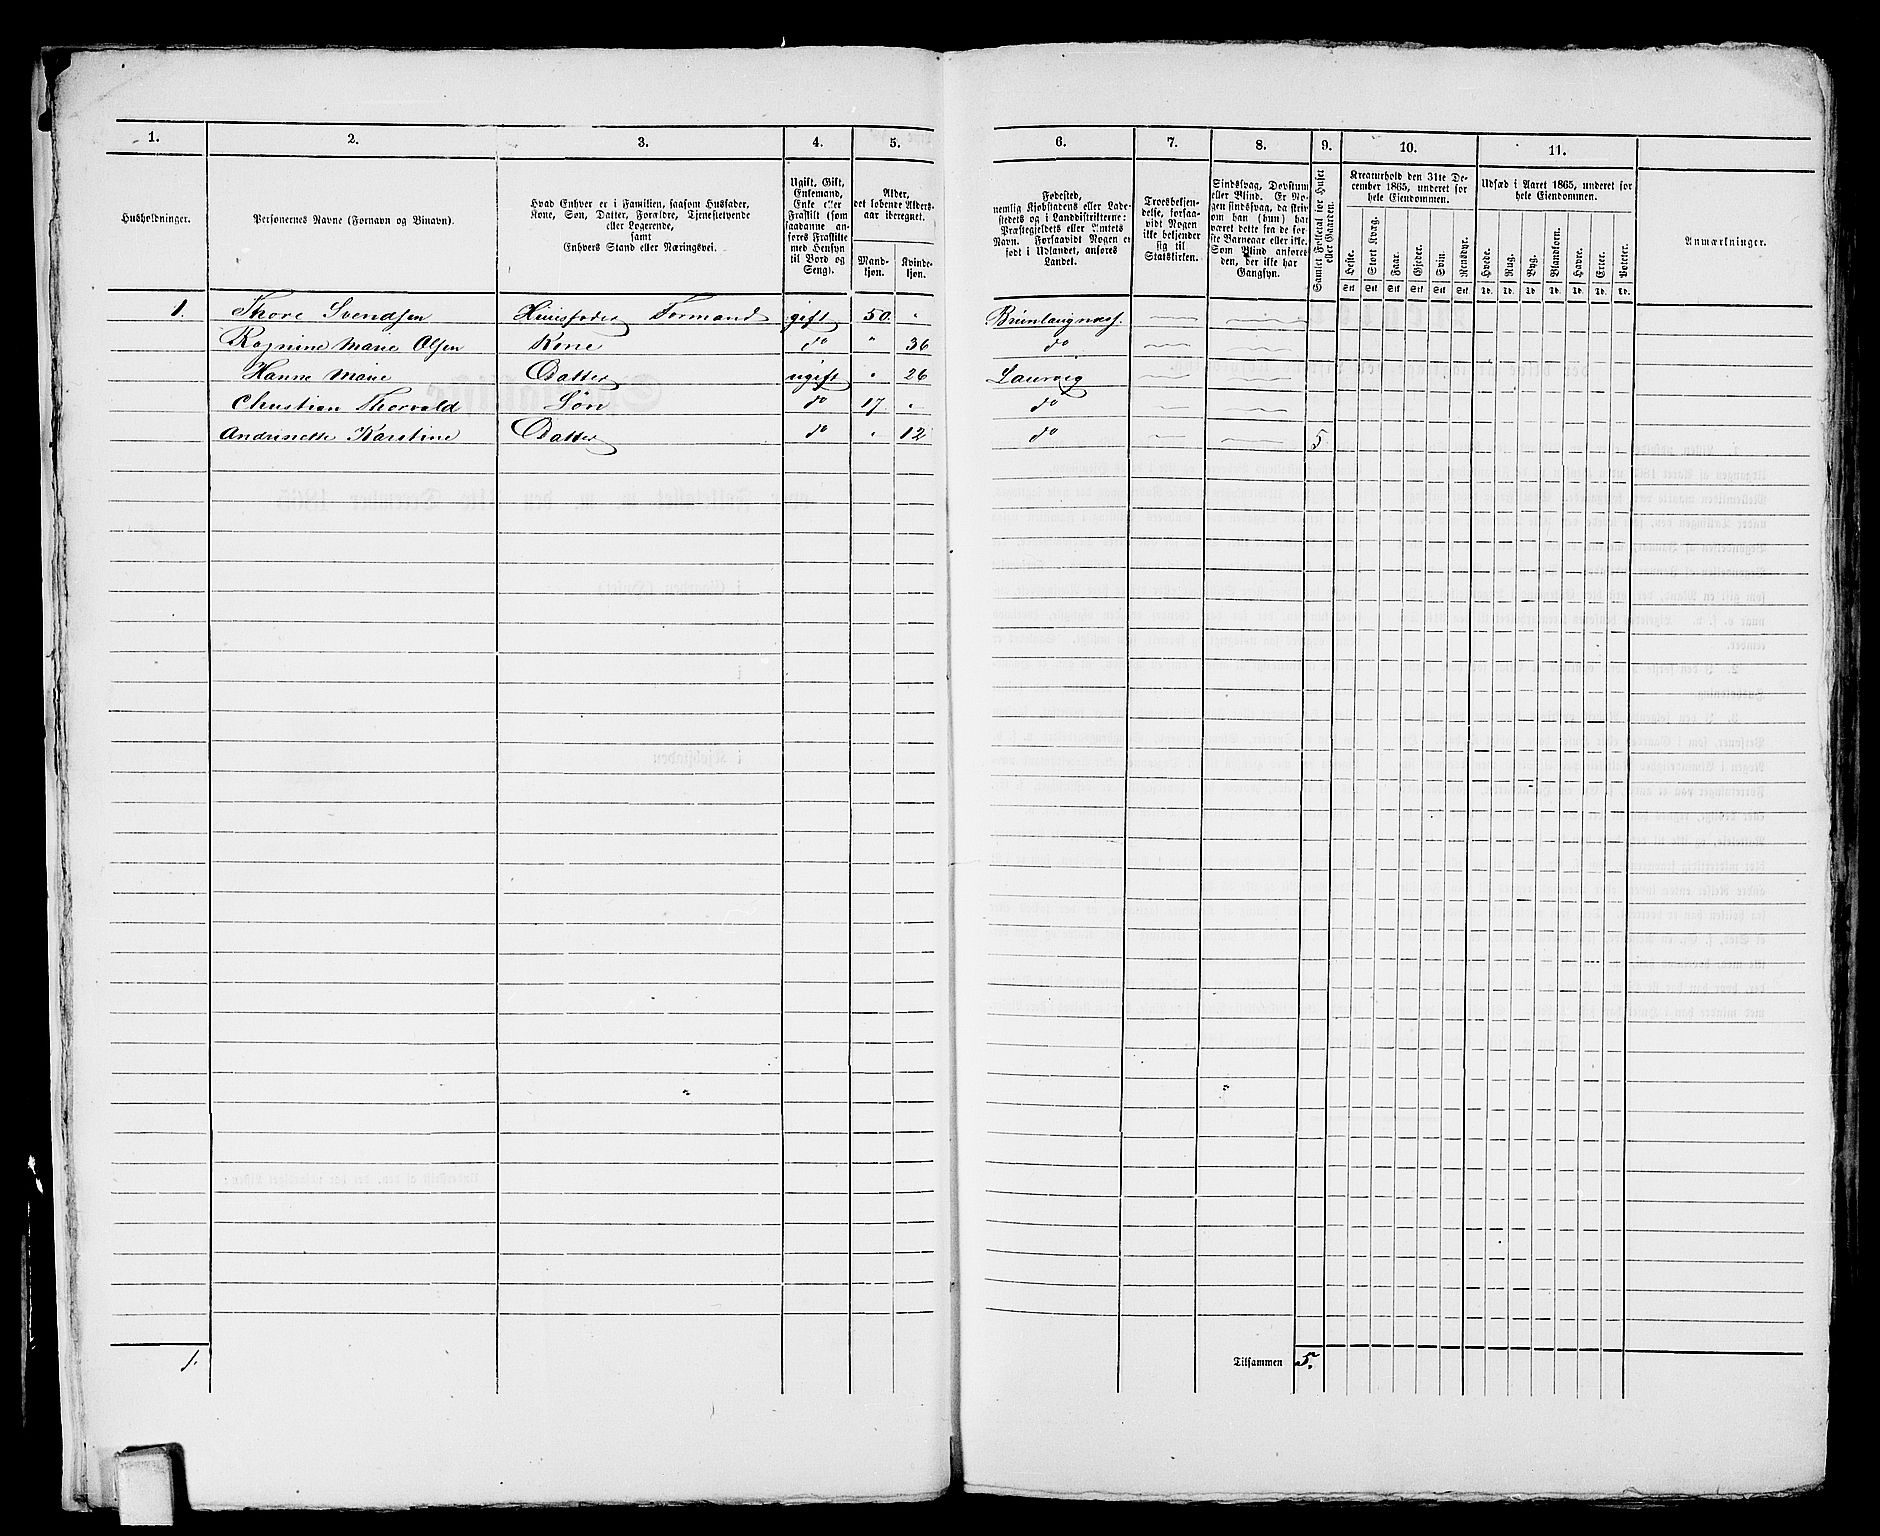 1. 2. 3. 4. 5. 6. 7. 8. 9. 10. 11.
Husholdninger.
Personernes Navne (Fornavn og Binavn).
Hvad Enhver er i Familien, saasom Husfader,
Kone, Søn, Datter, Forældre, Tjenestetyende
eller Logerende,
samt
Enhvers Stand eller Næringsvei.
Ugift, Gift,
Enkemand,
Enke eller
Fraskilt (som
saadanne an-
føres Fraskilte
med Hensyn
til Bord og
Seng).
Alder,
det løbende Alders-
aar iberegnet.
Mand-
kjøn.
Kvinde-
kjøn.
Fødested,
nemlig Kjøbstadens eller Lade-
stedets og i Landdistrikterne:
Præstegjeldets eller Amtets
Navn. Forsaavidt Nogen er
født i Udlandet, anføres
Landet.
Troesbekjen-
delse, forsaa-
vidt Nogen
ikke bekjender
sig til
Statskirken.
Sindssvag, Døvstum
eller Blind. Er No-
gen sindssvag, da skriv
om han (hun) har
været dette fra de før-
ste Barneaar eller ikke.
Som Blind anføres
den, der ikke har
Gangsyn.
Samlet Folketal for Huset
eller Gaarden.
Kreaturhold den 31te De-
cember 1865, underet for
hele Eiendommen.
Heste. Stort Kvæg. Faar. Gjeder. Svin. Rensdyr.
Stk Stk Stk Stk Stk Stk
Udsæd i Aaret 1865, underet for
hele Eiendommen.
Hvede. Rug. Byg. Blandkorn. Havre. Erter. Poteter.
Td. Td. Td. Td. Td. Td. Td.
Anmærkninger.
1. Thore Svendsen Huusfader Formand gift 50. " Brunlaugnæss.
Ragnine Marie Olsen Kone do " 36 do
Hanne Marie Datter ugift " 26 Laurvig
Christian Thorvald Søn do 17. " do
Andrinette Karstine Datter do " 12 do 5
1. Tilsammen 5.